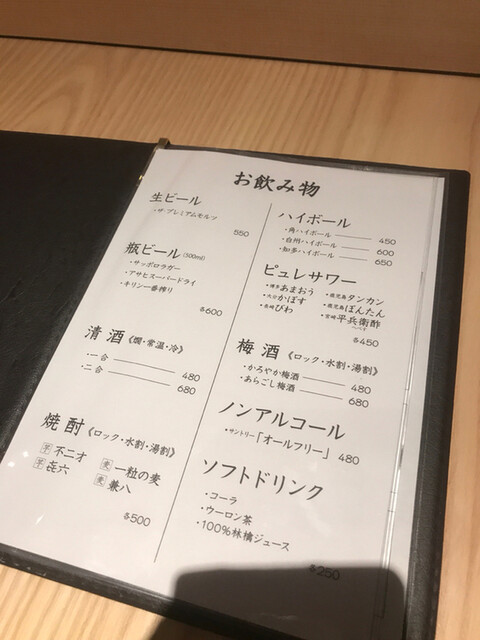 お飲み物
生ビール
・ザ・プレミアムモルツ
550
瓶ビール (500ml)
・サッポロラガー
・アサヒスーパードライ
・キリン一番搾り
各600
清酒《燗・常温・冷》
・一合 480
・二合 680
焼酎《ロック・水割・湯割》
芋 不二才 麦 一粒の麦
芋 㐂六 麦 兼八
各500
ハイボール
・角ハイボール 450
・白州ハイボール 600
・知多ハイボール 650
ピュレサワー
・博多 あまおう ・鹿児島 タンカン
・大分 かぼす ・鹿児島 ぼんたん
・長崎 びわ ・宮崎 平兵衛酢
各450
梅酒《ロック・水割・湯割》
・かろやか梅酒 480
・あらごし梅酒 680
ノンアルコール
・サントリー「オールフリー」 480
ソフトドリンク
・コーラ
・ウーロン茶
・100%林檎ジュース
各250